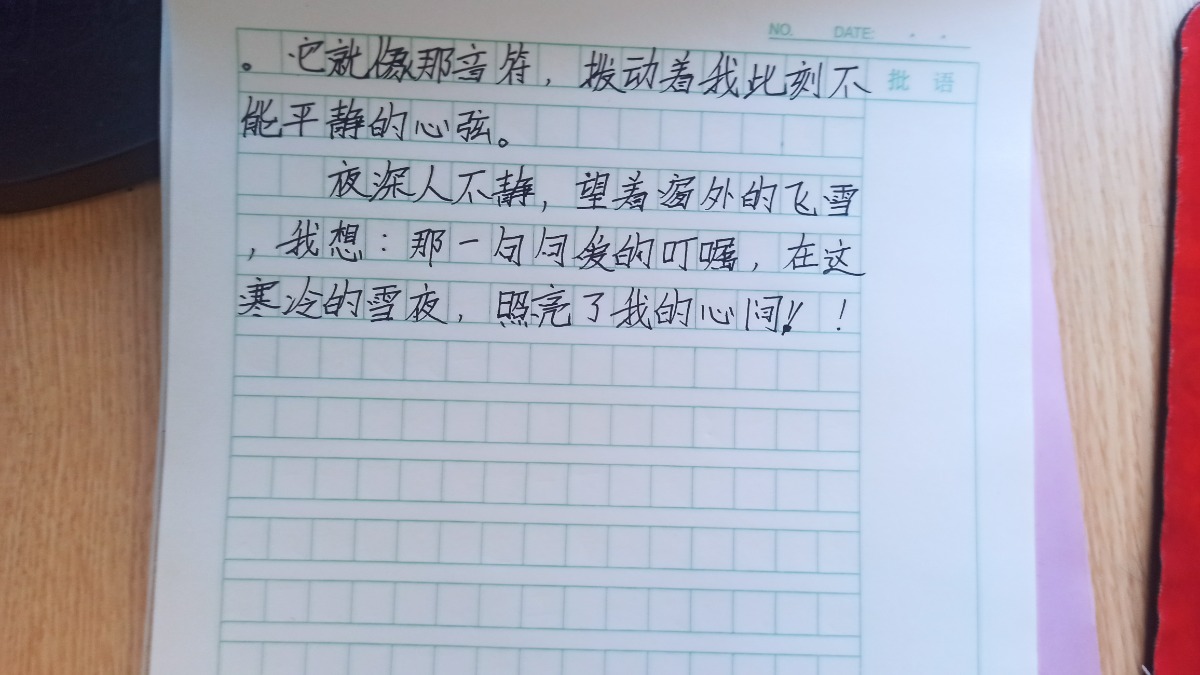 NO. DATE:
。它就像那音符，拨动着我此刻不
批 语
能平静的心弦。
夜深人不静，望着窗外的飞雪
，我想：那一句句爱的叮嘱，在这
寒冷的雪夜，照亮了我的心间！！